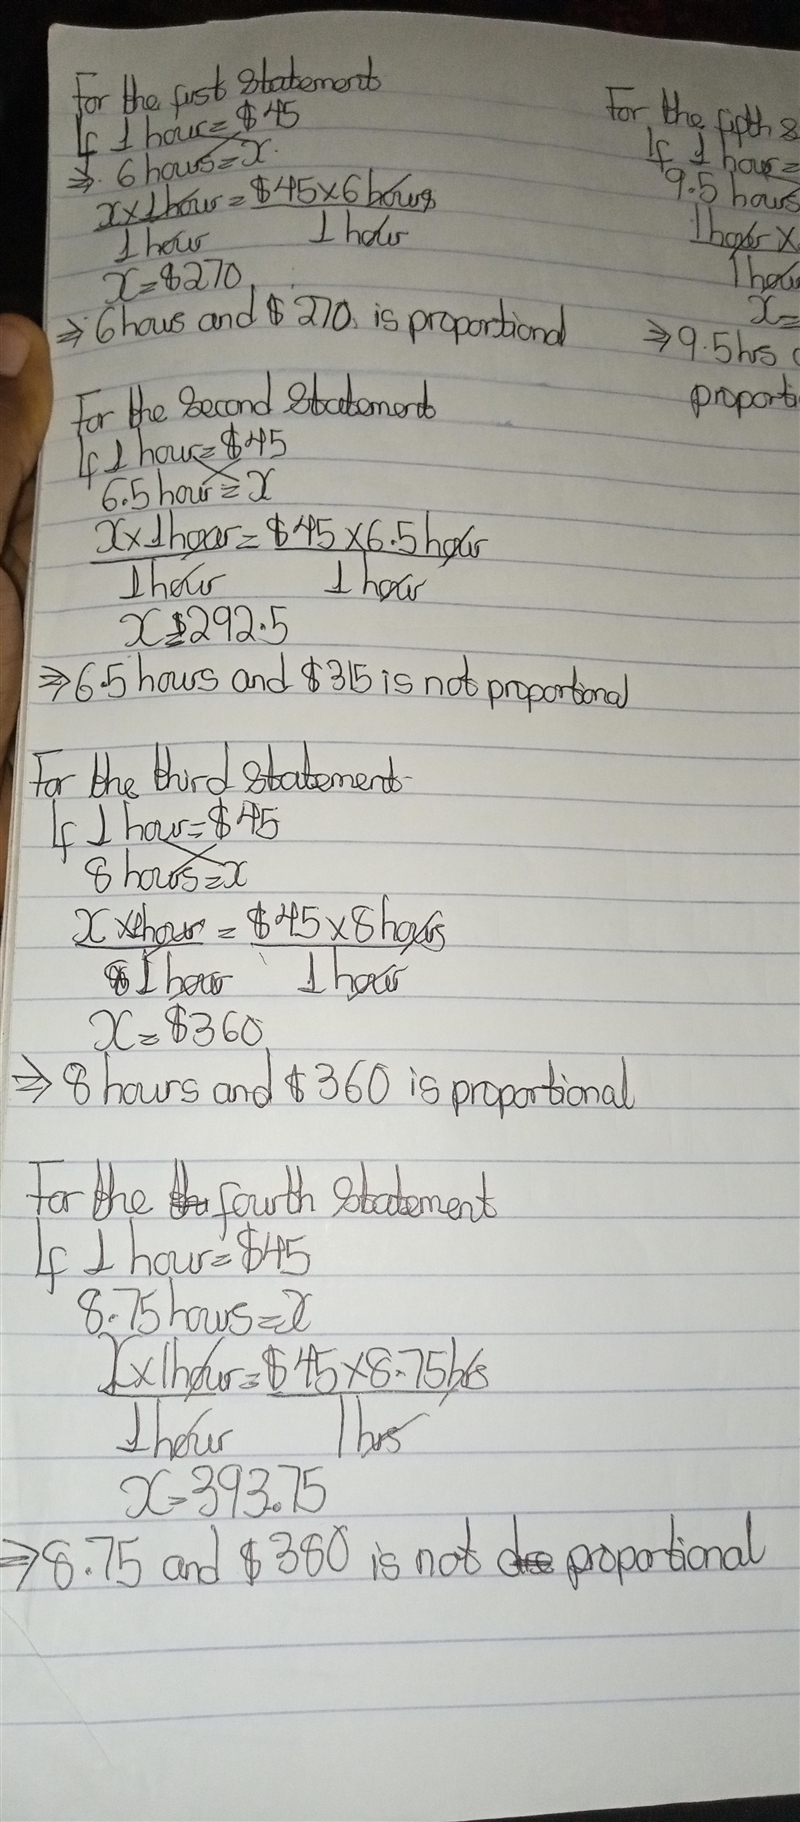 For the first Statement
If 1 hour = $45
⇒ 6 hours = x
x × 1 hour = $45 × 6 hours
1 hour 1 hour
x = $270
⇒ 6 hours and $270 is proportional
For the Second Statement
If 1 hour = $45
6.5 hour = x
x × 1 hour = $45 × 6.5 hour
1 hour 1 hour
x = $292.5
⇒ 6.5 hours and $315 is not proportional
For the third Statement
If 1 hour = $45
8 hours = x
x × 1 hour = $45 × 8 hours
1 hour 1 hour
x = $360
⇒ 8 hours and $360 is proportional
For the fourth Statement
If 1 hour = $45
8.75 hours = x
x × 1 hour = $45 × 8.75 hrs
1 hour 1 hrs
x = 393.75
⇒ 8.75 and $380 is not proportional
For the fifth S
If 1 hour =
9.5 hours
1 hour x
1 hou
x =
⇒ 9.5 hrs
proporti